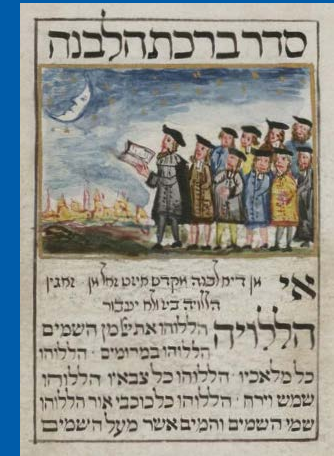 סדר ברכת הלבנה
אי מן לבנה מקדש זאל מן זאגין
הללויה ביז ולא יעבור
הללויה הללוהו את מן השמים
הללוהו במרומים · הללוהו
כל מלאכיו · הללוהו כל צבאיו הללוהו
שמש וירח · הללוהו כל כוכבי אור הללוהו
שמי השמים והמים אשר מעל השמים